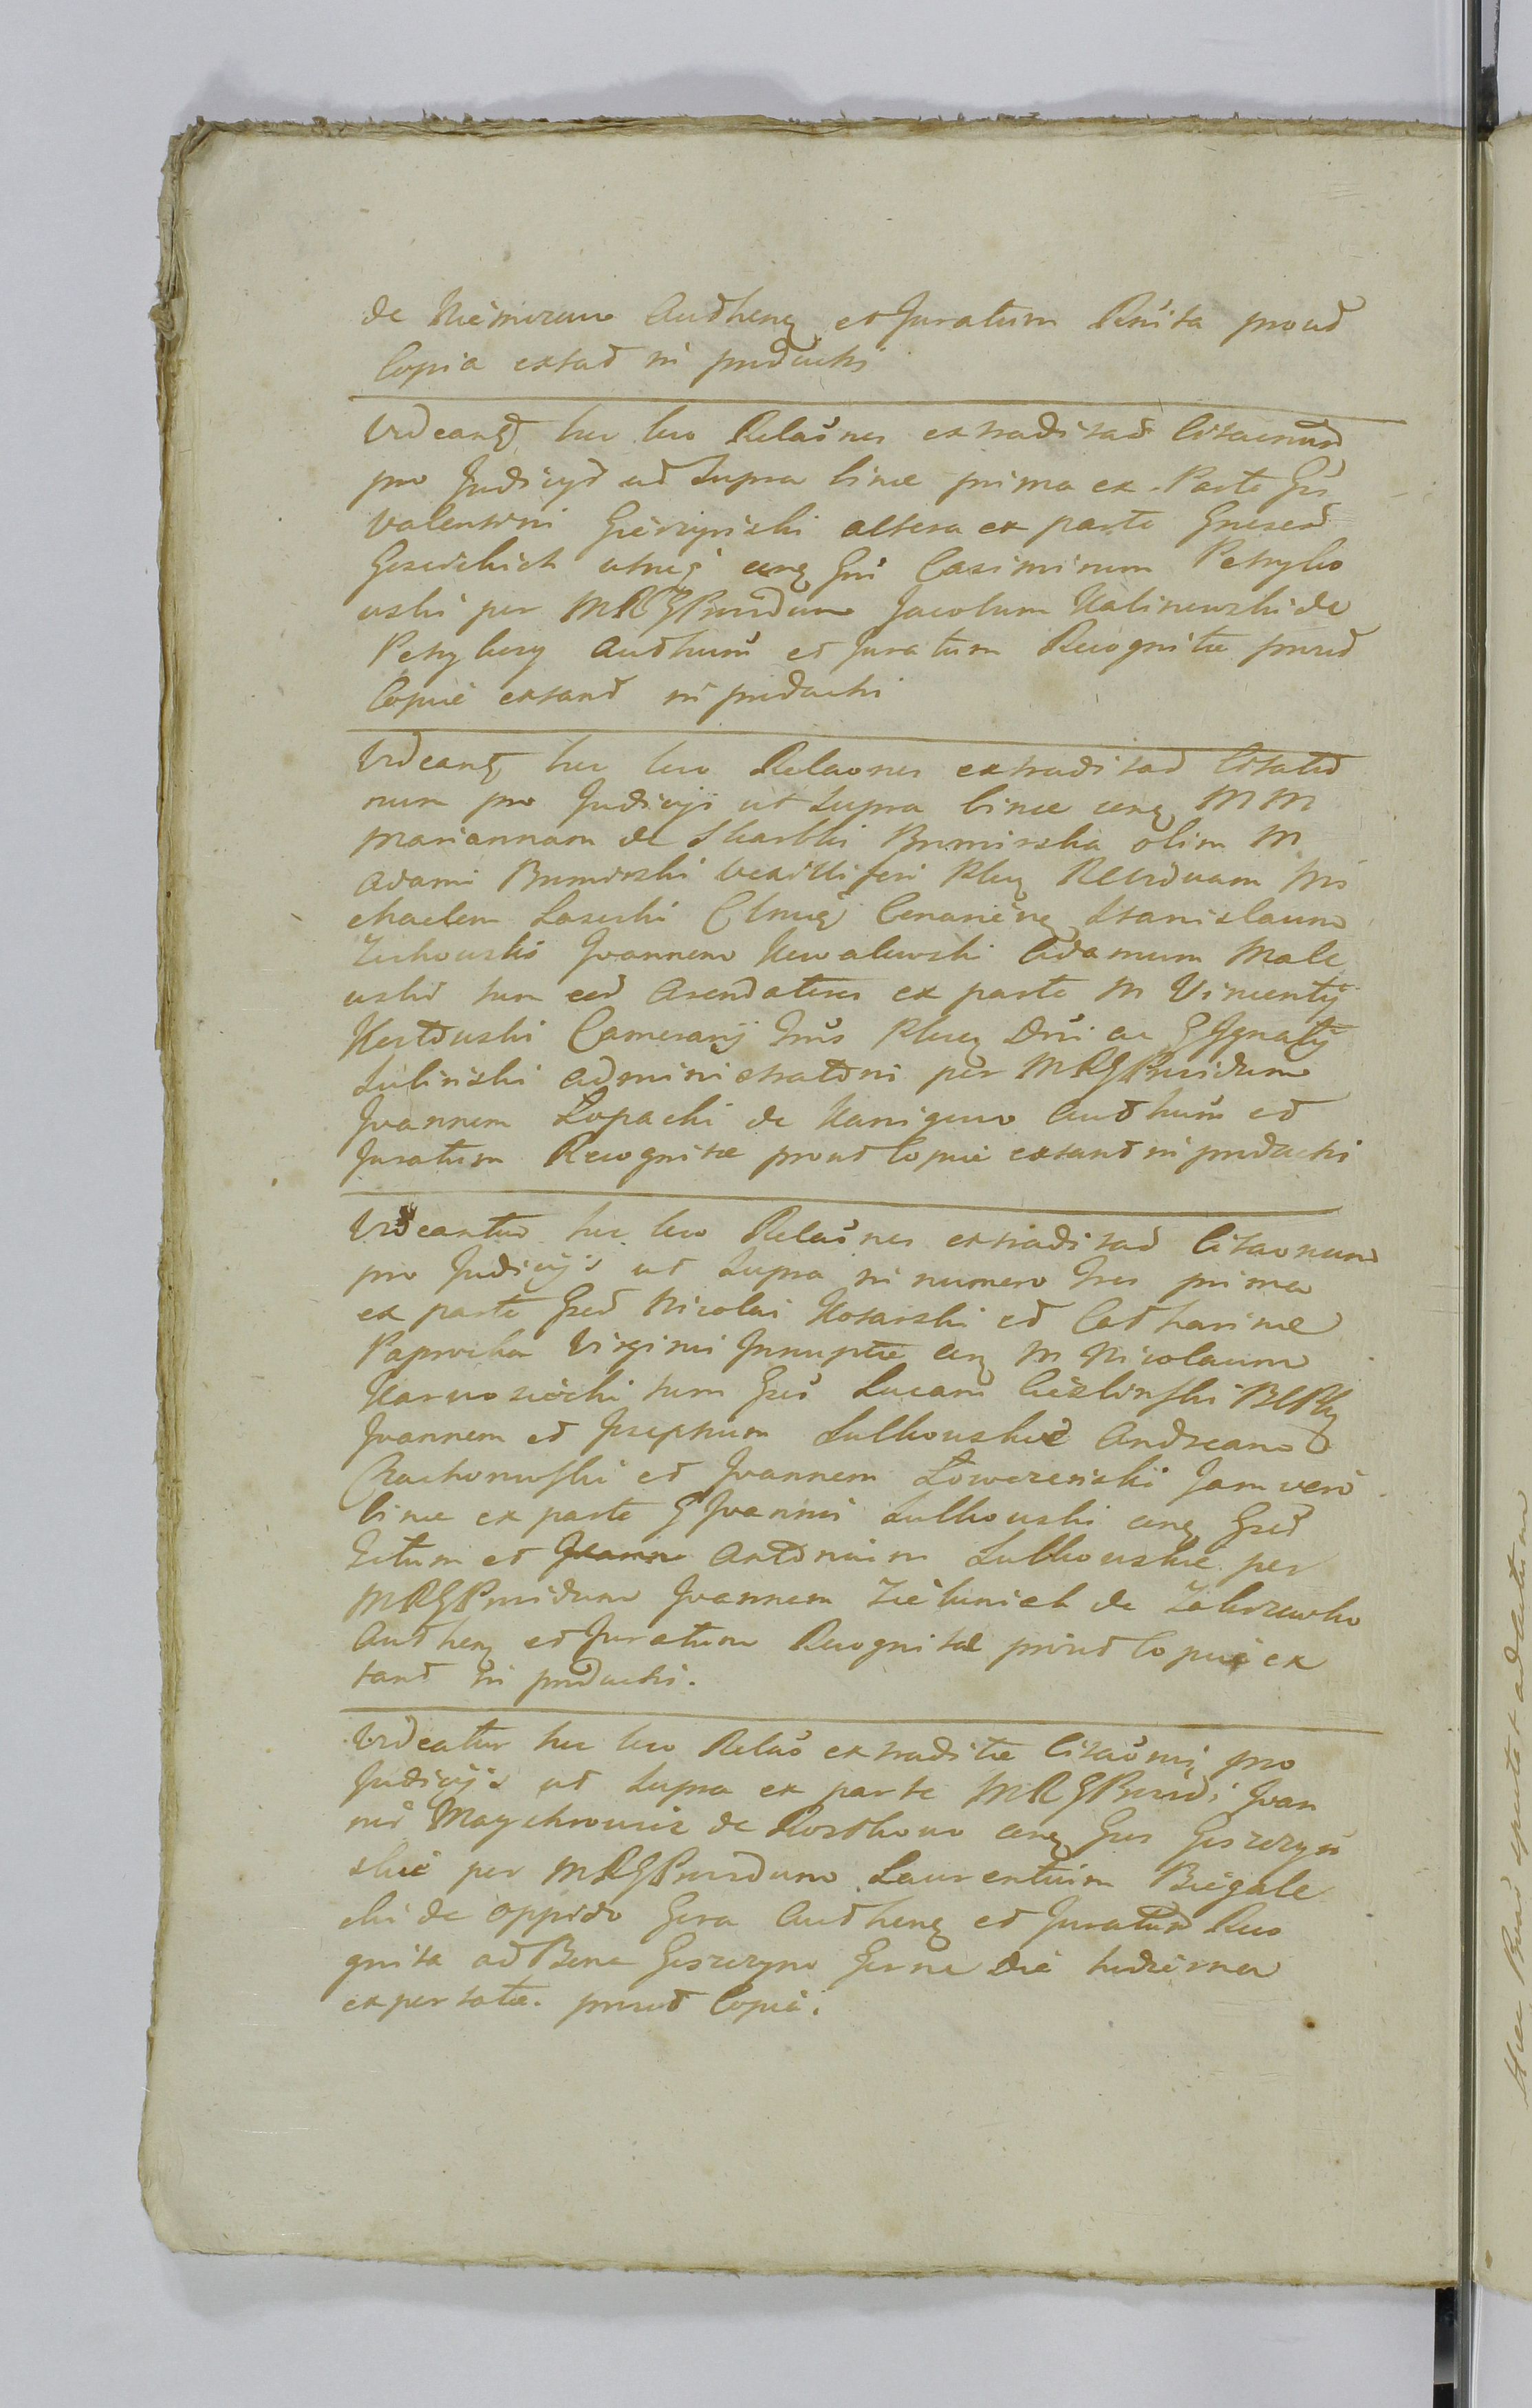 de Niemirow Authenq et Juratum Rnita prout
Copia extat in productis
Videantq hic loco Relaõnes extraditar Citaonum
pro Judicijs ut Supra binæ prima ex Parte Gsi
Valentini altera ex parte
utriq cerq Gni Casimirum Petryko
wski per MRGProvidum Jacobum Kalinowski de
Petrykozy Authum et Juratum Recognitæ prout
Copiæ extant in productis
Videantq hic loco Relaones extraditar Citatio
num pro Judicijs ut Supra binæ cerq MM
Mariannam de Skarbki Bromirska olim M
Adami Bromirski Vexilliferi Plcq Relictam Mi
chaelem Lasocki Stanislaum
Zochowski Joannem Kowalewski Adamum Male
wski tum eod Arendatores ex parte M Vincentij
Kostowski Camerarij Grus Plocq Dni ac G Ignatij
Sulinski administratoris per MRGProvidum
Joannem Łopacki de Kanigowo Authum et
Juratum Recognitæ prout Copiæ extant in productis
Videantur hic loco Relaõnes extraditar Citaonum
pro Judicijs ut Supra in numero tres prima
ex parte Gsed Nicolai Kosarski et Catharinæ
Paprocka Virginis Innuptæ cerq M Nicolaum
Karwosiecki tum Gsos Lucam Cieslinski
Joannem et Josephum Sulkowskie Andream
Czachorowski et Joannem Łowczenski Jam vero
binæ ex parte G Joannis Sulkowski cerq Gsed
Titum et Joann Antonium Sulkowskie per
MRGProvidum Joannem Zielinich de Zakrzewko
Authenq et Juratum Recognitæ prout Copiæ ex
tant in productis.
Videatur hic loco Relaõ extraditæ Citaõnis pro
Judicijs ut Supra ex parte MRGProvidi Joan
nis Maychrowicz de Rostkowo cerq Gsos Goszczyn
skie per MRGProvidum Laurentium Biegale
cki de oppido Gora Authenq et Juratum Reco
gnita ad Bona Goszczyno Gorne Die hodierna
exportatæ. prout Copia.